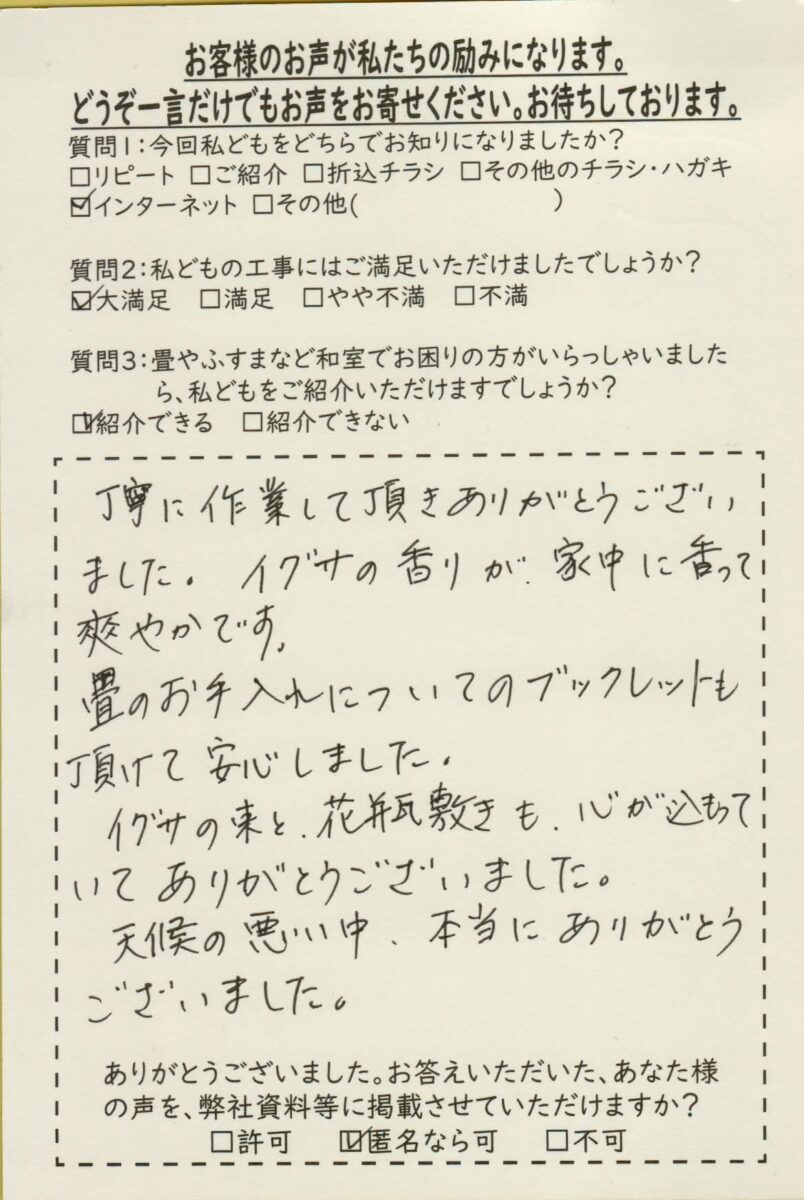 お客様のお声が私たちの励みになります。
どうぞ一言だけでもお声をお寄せください。お待ちしております。
質問1:今回私どもをどちらでお知りになりましたか?
□リピート □ご紹介 □折込チラシ □その他のチラシ・ハガキ
☑インターネット □その他( )
質問2:私どもの工事にはご満足いただけましたでしょうか?
☑大満足 □満足 □やや不満 □不満
質問3:畳やふすまなど和室でお困りの方がいらっしゃいました
ら、私どもをご紹介いただけますでしょうか?
☑紹介できる □紹介できない
丁寧に作業して頂きありがとうござい
ました。イグサの香りが、家中に香って
爽やかです。
畳のお手入れについてのブックレットも
頂けて安心しました。
イグサの束と、花瓶敷きも、心が込もって
いてありがとうございました。
天候の悪い中、本当にありがとう
ございました。
ありがとうございました。お答えいただいた、あなた様
の声を、弊社資料等に掲載させていただけますか?
□許可 ☑匿名なら可 □不可